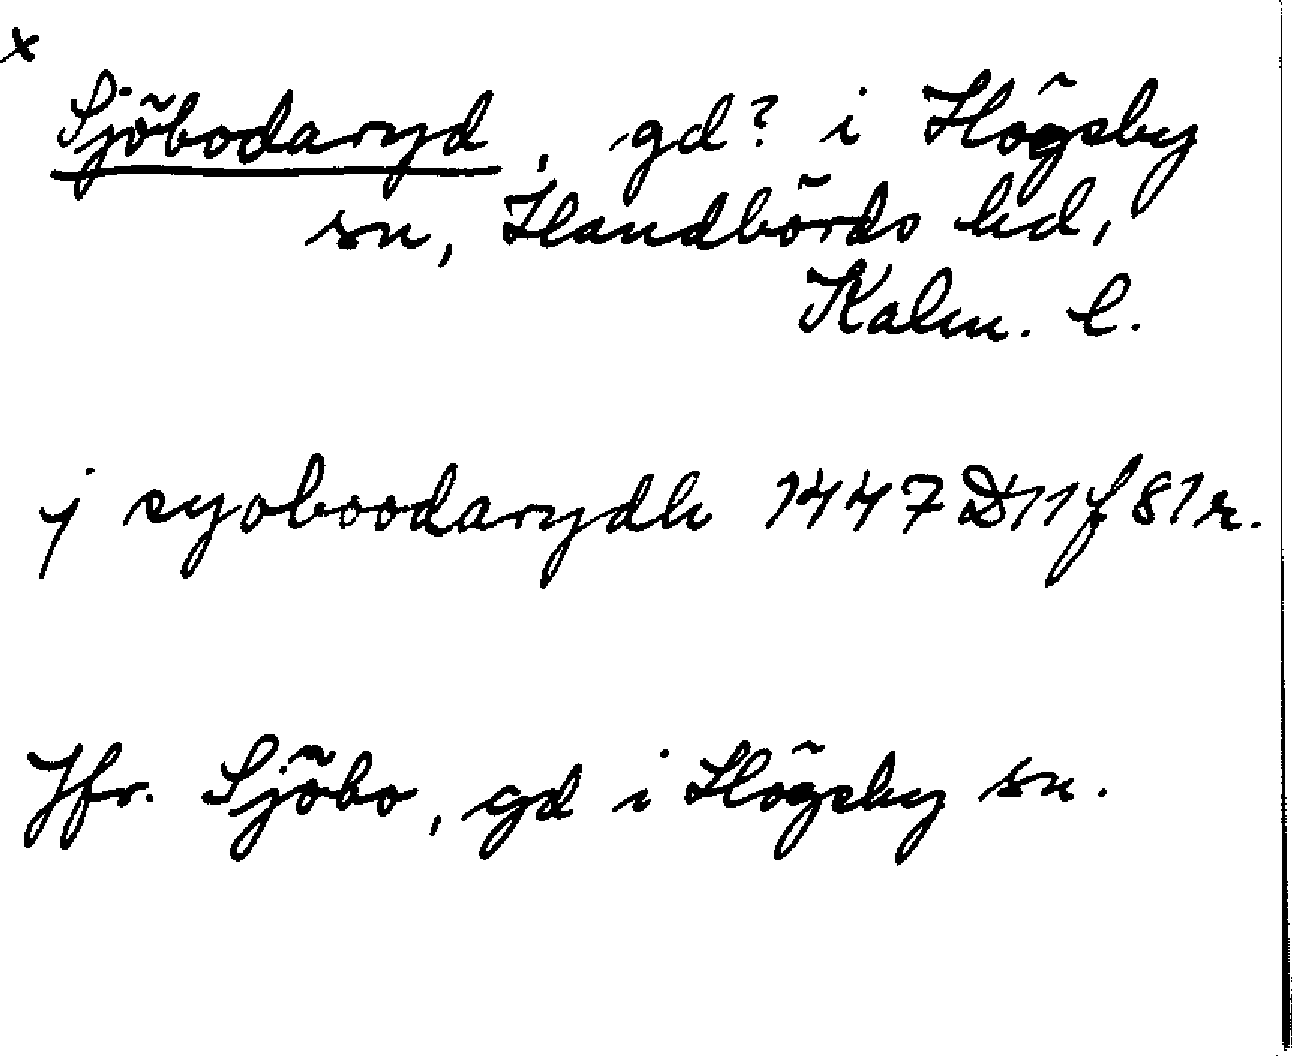 x
Sjöbodaryd, gd? i Högsby
sn, Handbörds hd,
Kalm. l.
j syoboodarydh 1447 D11 f 81 r.
Jfr. Sjöbo, gd i Högsby sn.